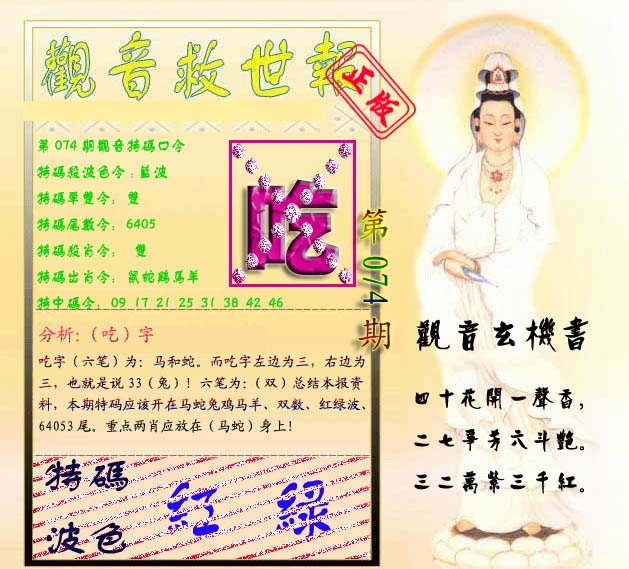 觀音救世報
正版
第074期觀音特碼口令
特碼殺波色令:藍波
特碼單雙令: 雙
特碼尾數令: 6405
特碼殺肖令: 雙
特碼出肖令: 鼠蛇鷄馬羊
特中碼令: 09 17 21 25 31 38 42 46
吃
第074期
分析:(吃)字
吃字(六笔)为:马和蛇。而吃字左边为三,右边为
三,也就是说33(兔)!六笔为:(双)总结本报资
料,本期特码应该开在马蛇兔鸡马羊、双数、红绿波、
64053尾。重点两肖应放在(马蛇)身上!
特碼
波色
紅 綠
觀音玄機書
四十花開一聲香,
二七爭芳六斗艷。
三二萬紫三千紅。